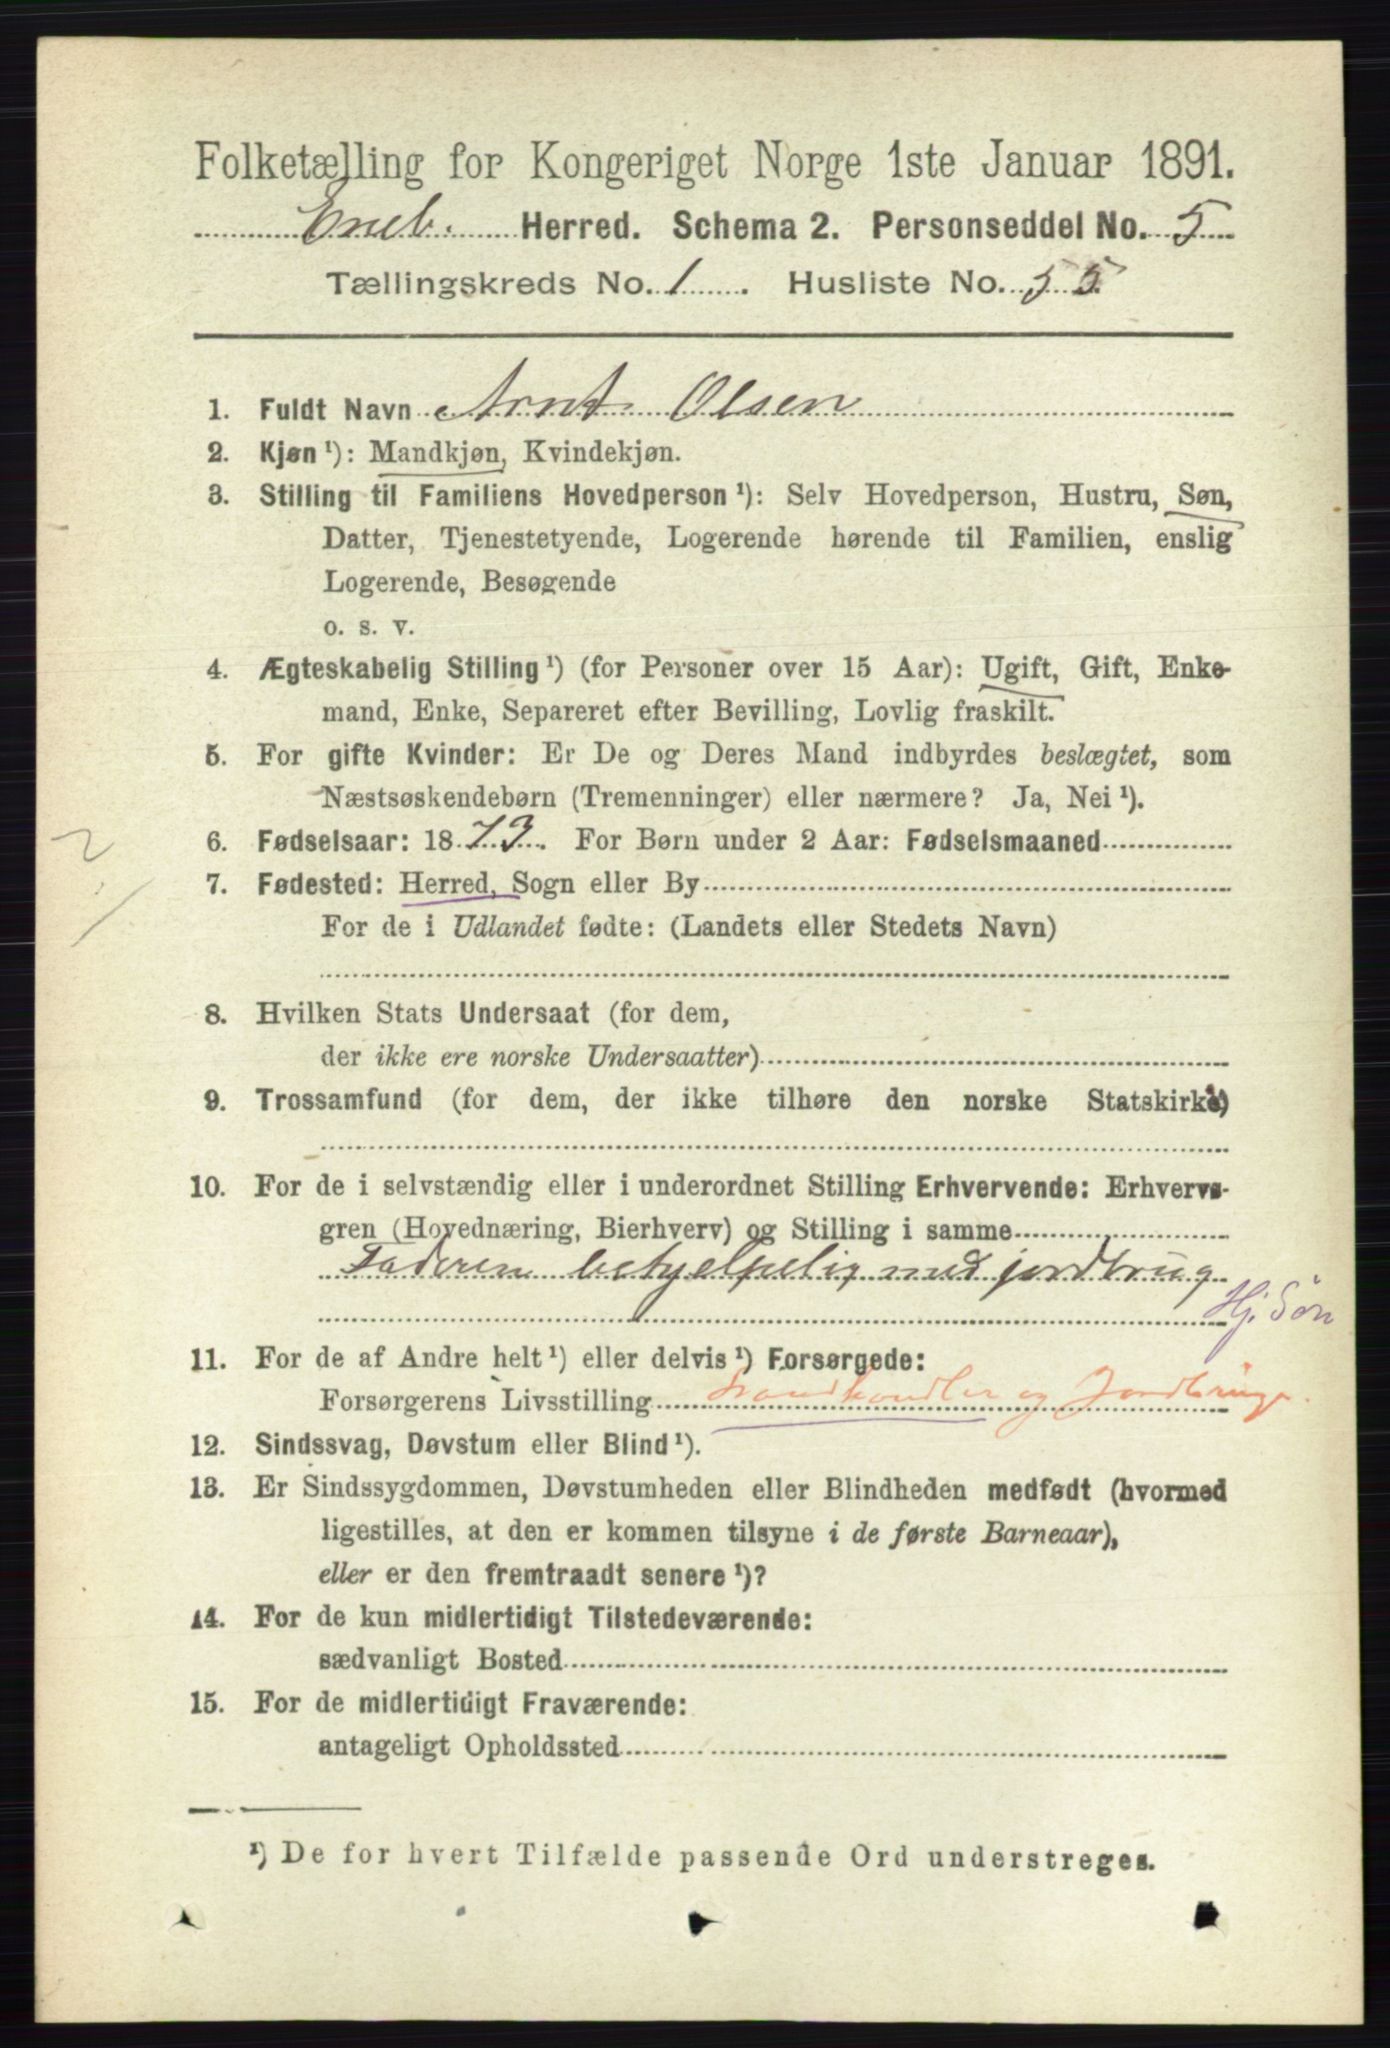 Folketælling for Kongeriget Norge 1ste Januar 1891.
Eneb. Herred. Schema 2. Personseddel No. 5
Tællingskreds No. 1. Husliste No. 55
1. Fuldt Navn Arnt Olsen
2. Kjøn ¹): Mandkjøn, Kvindekjøn.
3. Stilling til Familiens Hovedperson ¹): Selv Hovedperson, Hustru, Søn,
Datter, Tjenestetyende, Logerende hørende til Familien, enslig
Logerende, Besøgende
o. s. v.
4. Ægteskabelig Stilling ¹) (for Personer over 15 Aar): Ugift, Gift, Enke-
mand, Enke, Separeret efter Bevilling, Lovlig fraskilt.
5. For gifte Kvinder: Er De og Deres Mand indbyrdes beslægtet, som
Næstsøskendebørn (Tremenninger) eller nærmere? Ja, Nei ¹).
6. Fødselsaar: 1873. For Børn under 2 Aar: Fødselsmaaned
7. Fødested: Herred, Sogn eller By
For de i Udlandet fødte: (Landets eller Stedets Navn)
8. Hvilken Stats Undersaat (for dem,
der ikke ere norske Undersaatter)
9. Trossamfund (for dem, der ikke tilhøre den norske Statskirke)
10. For de i selvstændig eller i underordnet Stilling Erhvervende: Erhvervs-
gren (Hovednæring, Bierhverv) og Stilling i samme
Faderen behjelpelig med jordbrug
Hj. Søn
11. For de af Andre helt ¹) eller delvis ¹) Forsørgede:
Forsørgerens Livsstilling og Jordbruge
12. Sindssvag, Døvstum eller Blind ¹).
13. Er Sindssygdommen, Døvstumheden eller Blindheden medfødt (hvormed
ligestilles, at den er kommen tilsyne i de første Barneaar),
eller er den fremtraadt senere ¹)?
14. For de kun midlertidigt Tilstedeværende:
sædvanligt Bosted
15. For de midlertidigt Fraværende:
antageligt Opholdssted
¹) De for hvert Tilfælde passende Ord understreges.